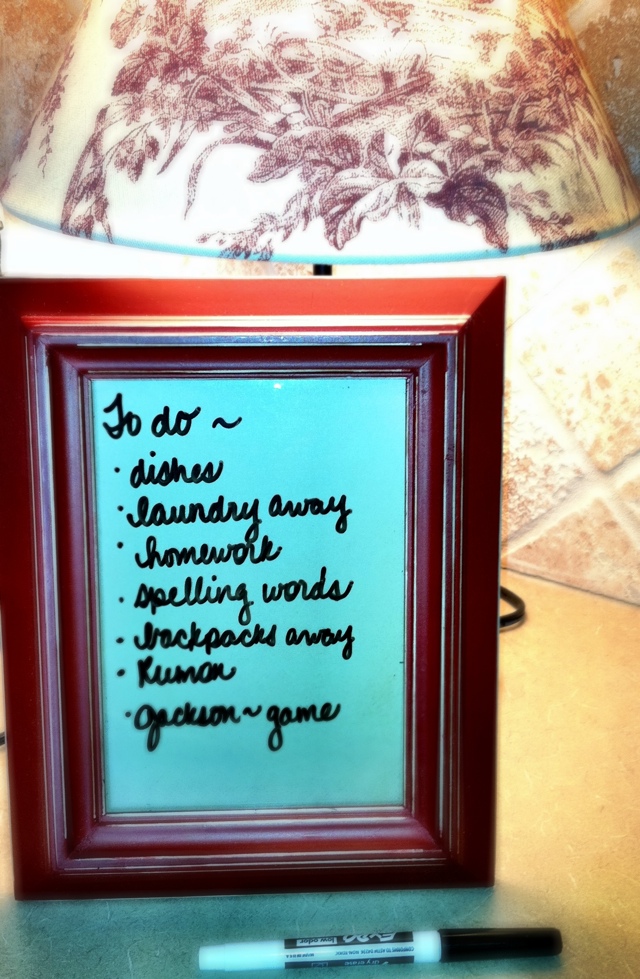 To do ~
· dishes
· laundry away
· homework
· spelling words
· backpacks away
· Kumon
· Jackson ~ game
EXPO
low odor